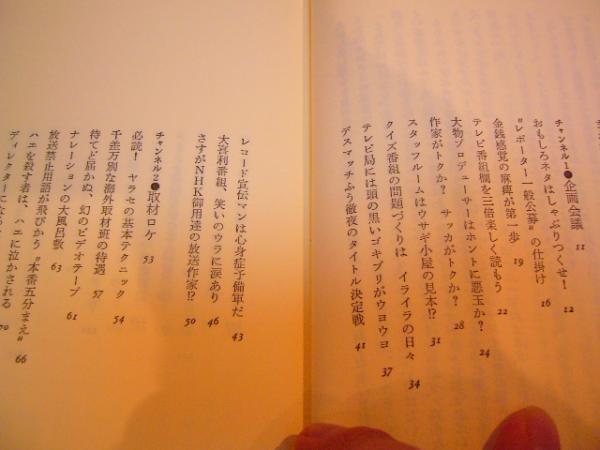 チャンネル1●企画会議 11
おもしろネタはしゃぶりつくせ！ 12
〝レポーター一般公募〟の仕掛け 16
金銭感覚の麻痺が第一歩 19
テレビ番組欄を三倍楽しく読もう 22
大物プロデューサーはホントに悪玉か？ 24
作家がトクか？ サッカがトクか？ 28
スタッフルームはウサギ小屋の見本!? 31
クイズ番組の問題づくりは イライラの日々 34
テレビ局には頭の黒いゴキブリがウヨウヨ 37
デスマッチふう徹夜のタイトル決定戦 41
レコード宣伝マンは心身症予備軍だ 43
大喜利番組、笑いのウラに涙あり 46
さすがNHK御用達の放送作家!? 50
チャンネル2●取材ロケ 53
必読！ ヤラセの基本テクニック 54
千差万別な海外取材班の待遇 57
待てど届かぬ、幻のビデオテープ 61
ナレーションの大風呂敷 63
放送禁止用語が飛びかう〝本番五分まえ〟 66
ハエを殺す者は、ハエに泣かされる 70
ディレクターになら